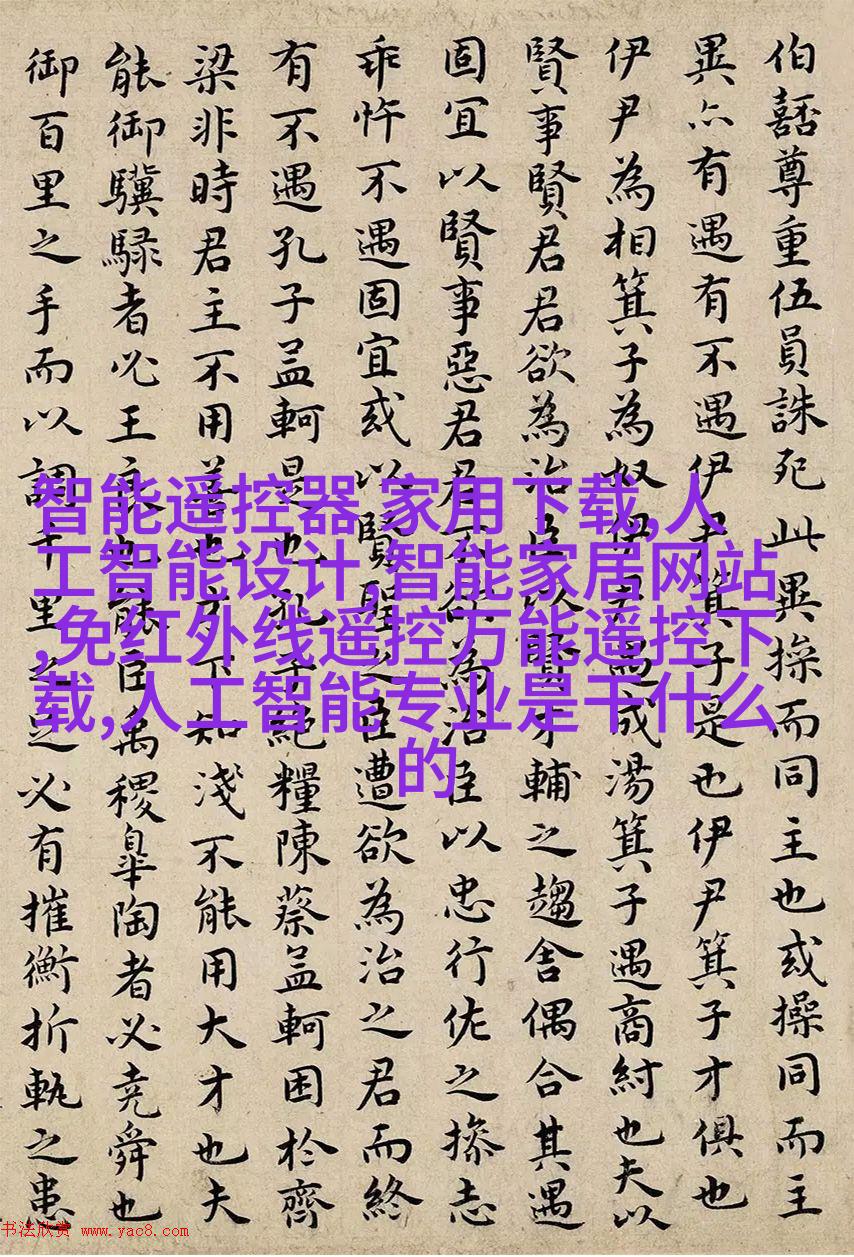 伯嚭尊重伍員誅死此異操而同主也或操同而主
異亦有遇有不遇伊尹箕子是也伊尹箕子才俱也
伊尹為相箕子為奴伊尹遇成湯箕子遇商紂也夫以
賢事賢君君欲為治臣以賢才輔之趨舍偶合其遇
固宜以賢事惡君君不欲為治臣以忠行佐之操志
乖忤不遇固宜或以賢聖之臣遭欲為治之君而終
有不遇孔子孟軻是也孔子絕糧陳蔡孟軻困於齊
梁非時君主不用善也才下知淺不能用大才也夫
能御驥騄者必王良也能臣禹稷皋陶者必堯舜也
御百里之手而以調千里之足必有摧衡折軛之患
智能遥控器 家用下载,人
工智能设计,智能家居网站
,免红外线遥控万能遥控下
载,人工智能专业是干什么
的
书法欣赏 www.yac8.com